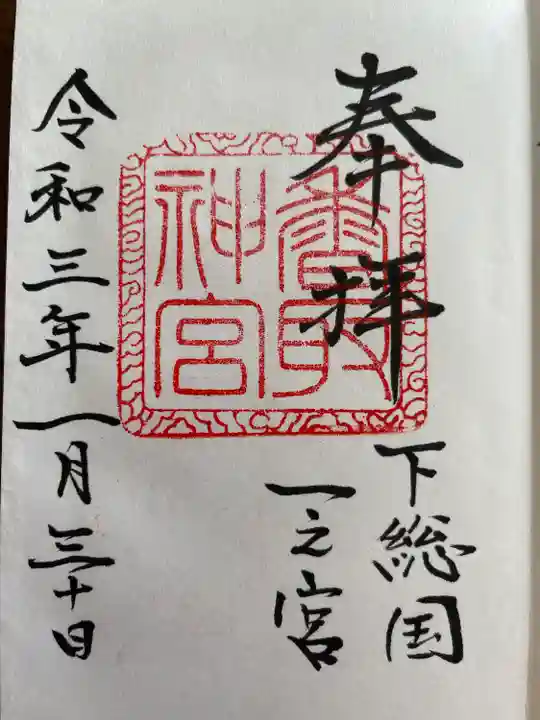 奉拝
下総国
一之宮
香取
神宮
令和三年一月三十日